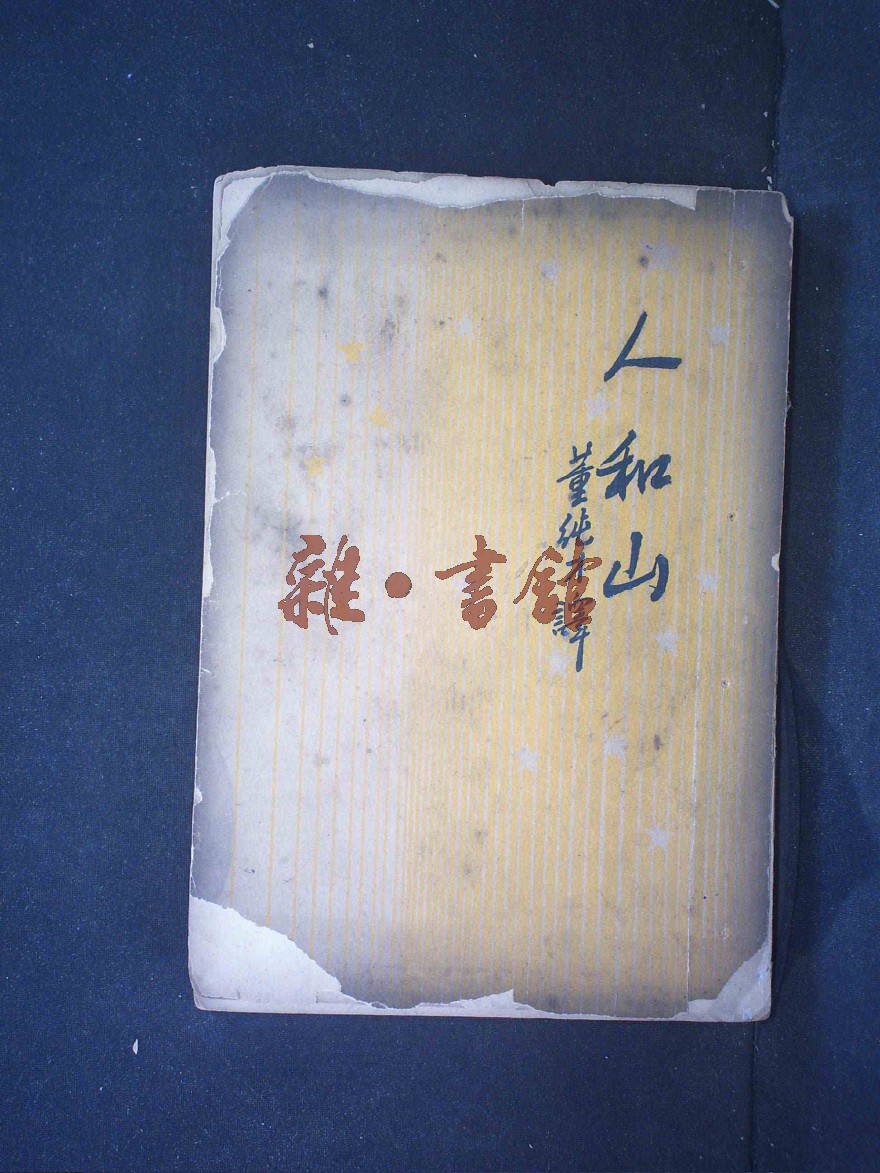 人和山
董純才譯
雜·書館